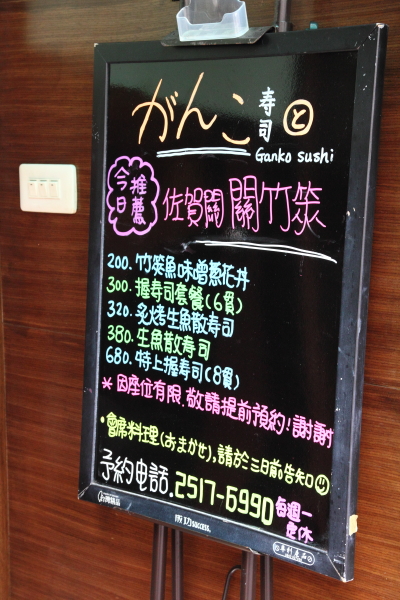 がんこ寿司 と
Ganko sushi
今日推薦
佐賀関 關竹筴
200. 竹筴魚味噌蔥花丼
300. 握寿司套餐(6貫)
320. 炙烤生魚散寿司
380. 生魚散寿司
680. 特上握寿司(8貫)
*因座位有限,敬請提前預約!謝謝
•會席料理(おまかせ),請於三日前告知
予約电話.2517-6990 每週一定休